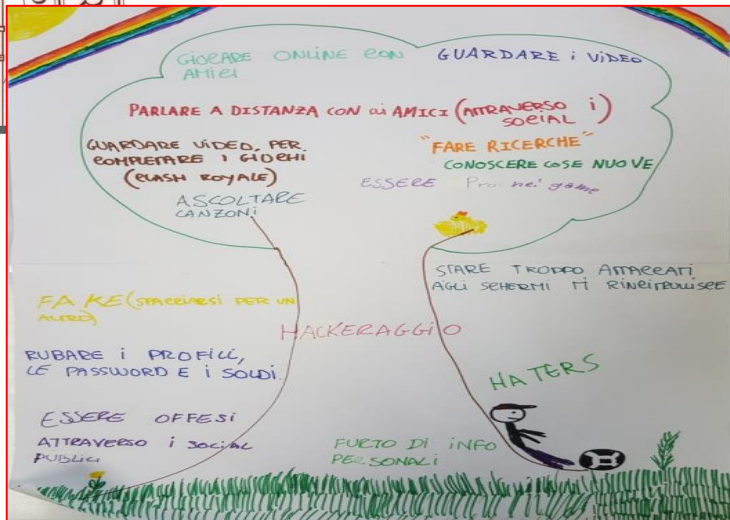 GIOCARE ONLINE CON
AMICI
GUARDARE i VIDEO
PARLARE A DISTANZA CON ai AMICI (ATTRAVERSO i
SOCIAL)
GUARDARE VIDEO, PER
COMPLETARE I GIOCHI
(CLASH ROYALE)
"FARE RICERCHE"
CONOSCERE COSE NUOVE
ESSERE Pro nei game
ASCOLTARE
CANZONI
STARE TROPPO ATTACCATI
AGLI SCHERMI TI RINCITRULLISCE
FAKE (SPACCIARSI PER UN
ALTRO)
HACKERAGGIO
RUBARE i PROFILI,
LE PASSWORD E i SOLDI.
HATERS
ESSERE OFFESI
ATTRAVERSO i SOCIAL
PUBLICI
FURTO DI INFO
PERSONALI